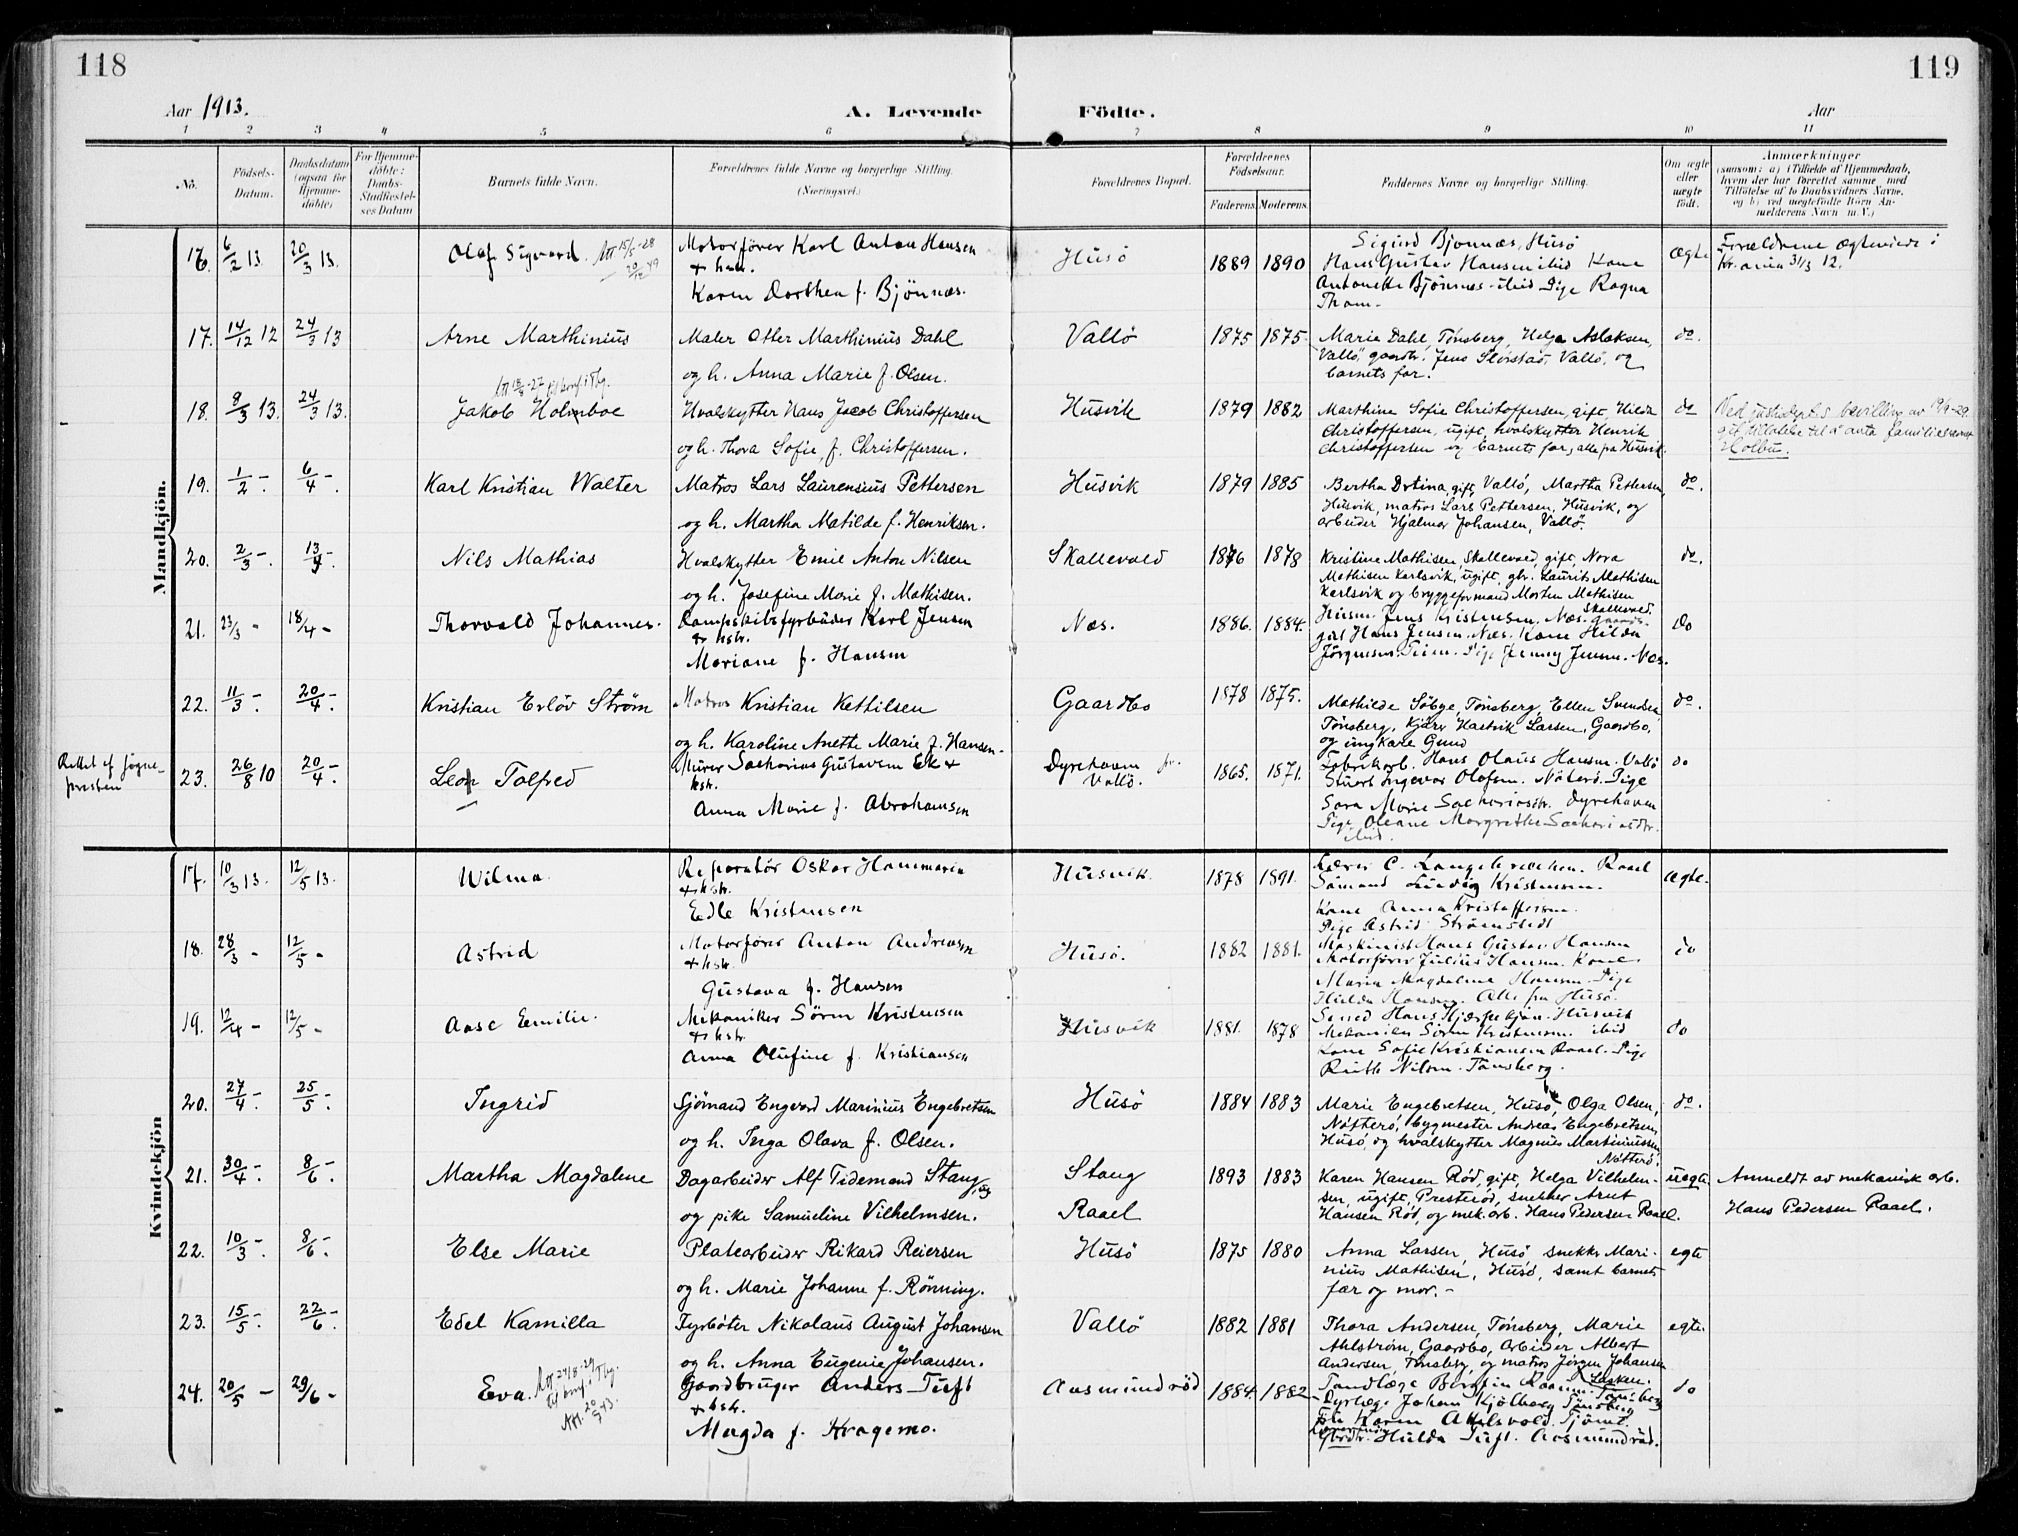 118
119
Aar 1913.
A. Levende Födte.
Aar
1 2 3 4 5 6 7 8 9 10 11
No.
Födsels-Datum.
Daabsdatum (ogsaa for Hjemme-döbte)
For Hjemme-döbte: Daabs-Stadfæstel-ses Datum
Barnets fulde Navn.
Forældrenes fulde Navne og borgerlige Stilling. (Næringsvei.)
Forældrenes Bopæl.
Forældrenes Födselsaar.
Faderens. Moderens.
Faddernes Navne og borgerlige Stilling.
Om ægte eller uægte födt.
Anmærkninger
(saasom: a) i Tilfælde af Hjemmedaab, hvem der har forrettet samme med Tilföielse af to Daabsvidners Navne. og b) ved uægtefödte Börn An-melderens Navn m. V.)
Mandkjön.
16. 6/2 13. 20/3 13. Olaf Sigvard. Att 15/5-28
Motorförer Karl Anton Hansen
+ hstr.
Karen Dorthea f. Bjönnæs.
Husö 1889 1890
Sigurd Bjonnæs, Husö
Hans Gustav Hansen ibid Kone
Antonette Bjönnes ibid Pige Ragna
Thom-
Ægte
Forældrene ægteviede i
Kr.ania 31/3 12.
17. 14/12 12 24/3 13 Arne Marthinius
Maler Otter Marthinius Dahl
og h. Anna Marie f. Olsen.
Vallö 1875 1875.
Marie Dahl, Tönsberg, Helga Aslaksen,
Vallö, gaardbr. Jens Slörstad, Vallö, og
barnets far.
do.
18. 8/3 13. 24/3 13. Jakob Holmboe
Hvalskytter Hans Jacob Christoffersen
og h. Thora Sofie, f. Christoffersen.
Husvik 1879 1882
Marthine Sofie Christoffersen, gift, Hilda
Christoffersen, ugift, hvalskytter Henrik
Christoffersen og barnets far, alle fra Husvik.
do
Ved justisdepts bevilling av 19/9-29.
git tillatelse til å anta familienavnet
Holbu.
19. 1/2 -. 6/4 -. Karl Kristian Walter
Matros Lars Laurensius Pettersen
og h. Martha Matilde f. Henriksen.
Husvik 1879 1885
Bertha Drtina, gift, Vallö, Martha Pettersen,
Husvik, matros Lars Pettersen, Husvik, og
arbeider Hjalmar Johansen, Vallö.
do.
20. 2/3 -. 13/4 -. Nils Mathias
Hvalskytter Emil Anton Nilsen
og h. Josefine Marie f. Mathisen.
Skallevold 1876 1878
Kristine Mathisen Skallevold, gift, Nora
Mathisen Karlsvik, ugift, gbr. Laurits Mathisen
Karlsvik og bryggeformand Morten Mathisen
Skallevold.
do.
21. 23/3 - 18/4 - Thorvald Johannes.
Dampskibsfyrböder Karl Jensen
+ hstr.
Mariane f. Hansen
Næs. 1886. 1884.
Husm. Jens Kristensen. Næs. Gaards-
gut Hans Jensen. Næs. Kone Hilda
Jörgensen. Teien. Pige Jenny Jensen. Næs.
do
22. 11/3 -. 20/4 -. Kristian Erlöv Ström
Matros Kristian Kettilsen
og h. Karoline Anette Marie f. Hansen.
Gaardbo 1878 1875.
Mathilde Söbye, Tönsberg, Ellen Svendsen
Tönsberg, Kjær Hastvik Larsen, Gaardbo,
og ungkare Gund
do.
Rettet af sogne-
presten
23. 26/8 10 20/4 -. Leon Tolfred
Murer Sacharias Gustavsen Ek +
hstr.
Anna Marie f. Abrahamsen
Dyrehaven pr.
Vallö.
1865. 1871.
Fabrikarb. Hans Olaus Hansen. Vallö
Stuert Ingevar Olafsen. Nöterö. Pige
Sara Marie Sachariasdtr. Dyrehaven
Pige Oleane Margrethe Sachariasdtr.
ibid.
do
Kvindekjön
17. 10/3 13. 12/5 13. Wilma.
Reparatör Oskar Hammarin
+ hstr.
Edle Kristensen
Husvik. 1878 1891.
Lærer C. Langebrækken. Raael
Sömand Ludvig Kristensen.
Kone Anna Kristoffersen.
Pige Astrid Strömstedt
Ægte.
18. 28/3 - 12/5 - Astrid
Motorförer Anton Andreasen
+ hstr.
Gustava f. Hansen
Husö. 1882 1881.
Maskinist Hans Gustav Hansen
Motorförer Julius Hansen. Kone
Maria Magdalene Hansen. Pige
Hilda Hansen. Alle fra Husö.
do
19. 12/4 - 12/5 - Aase Emilie.
Mekaniker Sören Kristensen
+ hstr.
Anna Olufine f. Kristiansen
Husvik 1881. 1878
Hans Hjertekjær. Husvik
Mekaniker Sören Kristensen. ibid
Kone Sofie Kristiansen Raael. Pige
Ruth Nilsen. Tönsberg.
do
20. 27/4 -. 25/5 -. Ingrid
Sjömand Engvard Marinius Engebretsen
og h. Inga Olava f. Olsen.
Husö 1884 1883
Marie Engebretsen, Husö, Olga Olsen,
Nötterö, bygmester Andreas Engebretsen,
Husö, og hvalskytter Magnus Martiniussen
Nötterö.
do.
21. 30/4 -. 8/6 -. Martha Magdalene
Dagarbeider Alf Tidemand Stang, ug
og pike Samueline Vilhelmsen.
Stang
Raael
1893 1883
Karen Hansen Röd, gift, Helga Vilhelm-
sen, ugift, Presteröd, snekker Arnt
Hansen Röd, og mek. arb. Hans Pedersen Raael.
uegte
Anmeldt av mekanisk arb.
Hans Pedersen Raael.
22. 10/3 -. 8/6 -. Else Marie
Platearbeider Rikard Reiersen
og h. Marie Johanne f. Rönning.
Husö 1875 1880
Anna Larsen, Husö snekker Mari-
nius Mathisen, Husö, samt barnets
far og mor. -
egte
23. 15/5 -. 22/6 -. Edel Kamilla
Fyrböter Nikolaus August Johansen
og h. Anna Eugenie Johansen.
Vallö 1882 1881
Thora Andersen, Tönsberg, Marie
Ahlström, Gaardbo, Arbeider Albert
Andersen, Tönsberg, og matros Jörgen Johansen
egte.
24. 20/5 - 29/6 - Eva. Att 24/8-29
Att. 20/5 43.
Gaardbruger Anders Tuft
+ hstr.
Magda f. Kragemo.
Aasmundröd 1884. 1882.
Tandlæge Tönsberg
Dyrlæge Johan Kjölberg Tönsberg
Frk Karen Tjömö.
Hulda Tuft. Aasmundröd.
do